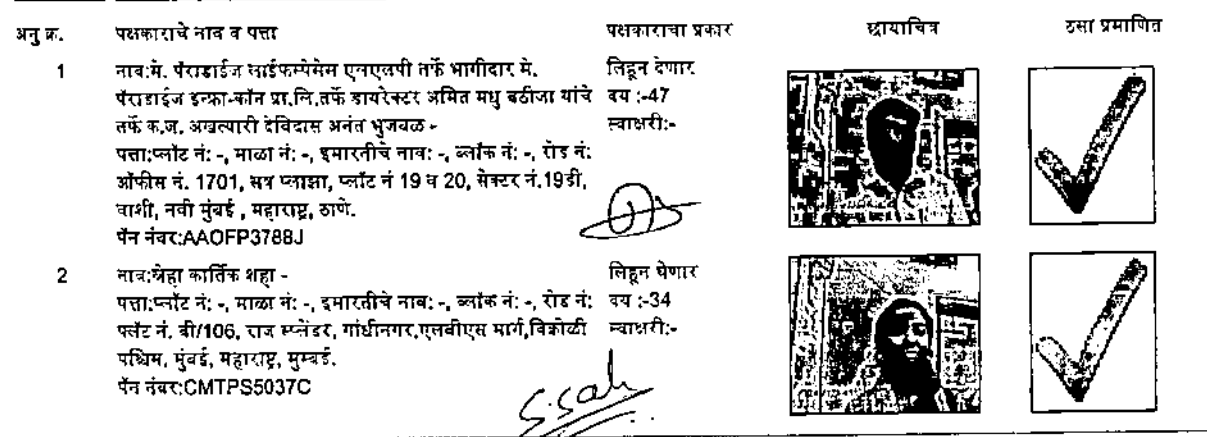 अनु क्र. पक्षकाराचे नाव व पत्ता पक्षकाराचा प्रकार छायाचित्र ठसा प्रमाणित
1 नाव:मे. पॅराडाईज लाईफस्पेसेस एलएलपी तर्फे भागीदार मे. लिहून देणार
पॅराडाईज इन्फ्रा-कॉन प्रा.लि.तर्फे डायरेक्टर अमित मधु बठीजा यांचे वय :-47
तर्फे क.ज. अखत्यारी देविदास अनंत भुजबळ - स्वाक्षरी:-
पत्ता:प्लॉट नं: -, माळा नं: -, इमारतीचे नाव: -, ब्लॉक नं: -, रोड नं:
ऑफीस नं. 1701, सत्र प्लाझा, प्लॉट नं 19 व 20, सेक्टर नं.19डी,
वाशी, नवी मुंबई , महाराष्ट्र, ठाणे.
पॅन नंबर:AAOFP3788J
2 नाव:स्नेहा कार्तिक शहा - लिहून घेणार
पत्ता:प्लॉट नं: -, माळा नं: -, इमारतीचे नाव: -, ब्लॉक नं: -, रोड नं: वय :-34
फ्लॅट नं. बी/106, राज स्प्लेंडर, गांधीनगर,एलबीएस मार्ग,विक्रोळी स्वाक्षरी:-
पश्चिम, मुंबई, महाराष्ट्र, मुम्बई.
पॅन नंबर:CMTPS5037C